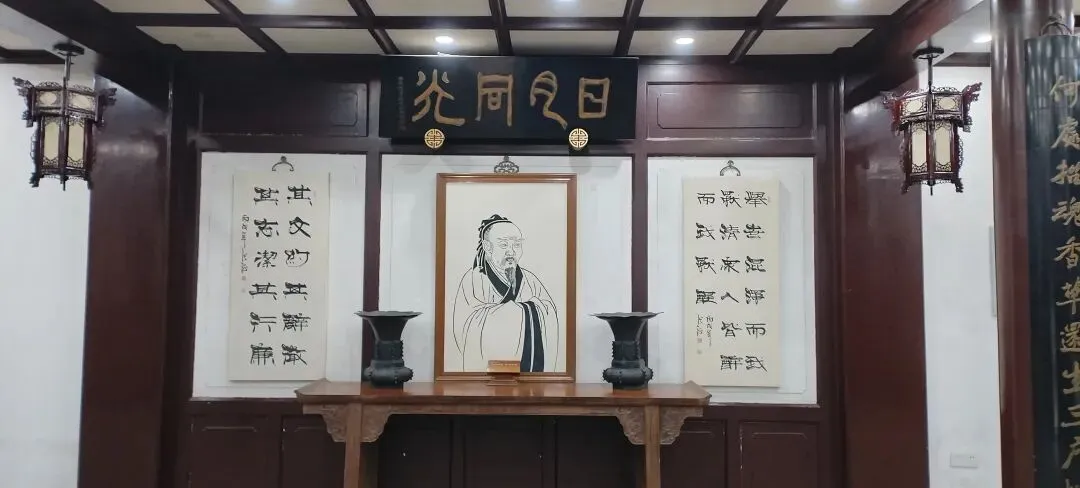 日月同光
舉世混濁而我
獨清衆人皆醉
而我獨醒
其文約其辭微
其志潔其行廉
何處招魂香草還生三戶